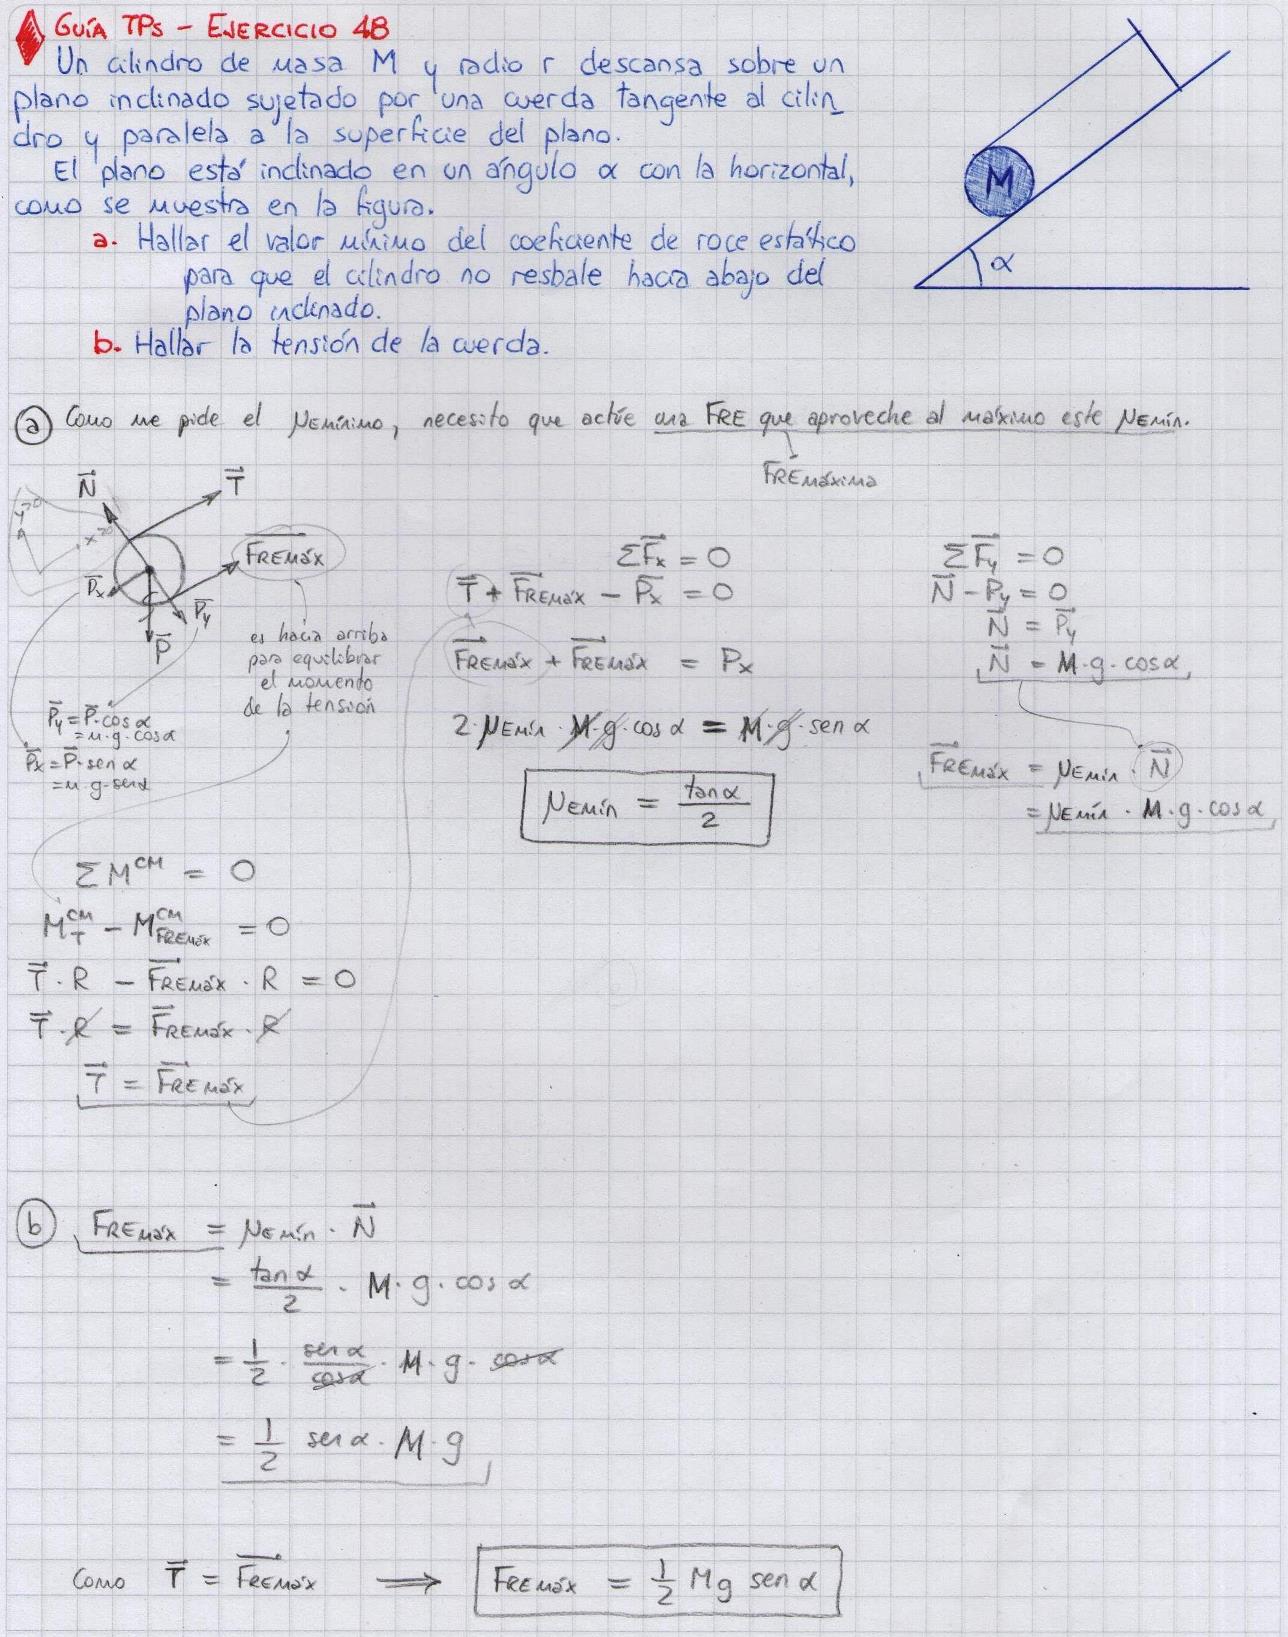 GUÍA TPS - EJERCICIO 4B
Un cilindro de masa M y radio r descansa sobre un
plano inclinado sujetado por una cuerda tangente al cilin_
dro y paralela a la superficie del plano.
El plano está inclinado en un ángulo α con la horizontal,
como se muestra en la figura.
a. Hallar el valor mínimo del coeficiente de roce estático
para que el cilindro no resbale hacia abajo del
plano inclinado.
b. Hallar la tensión de la cuerda.
M
α
a Como me pide el μEmínimo, necesito que actúe una FRE que aproveche al máximo este μEmín.
FREmáxima
N
T
y>0
x>0
FREMáx
Px
Py
P
es hacia arriba
para equilibrar
el momento
de la tensión
Py = P·cosα
= m·g·cosα
Px = P·sen α
= m·g·senα
ΣFx = 0
T + FREMáx - Px = 0
FREMáx + FREMáx = Px
2·μEmín·M·g·cos α = M·g·sen α
μEmín = tanα / 2
ΣFy = 0
N - Py = 0
N = Py
N = M·g·cosα
FREMáx = μEmín · N
= μEmín · M·g·cosα
ΣM^CM = 0
M_T^CM - M_FREMáx^CM = 0
T·R - FREMáx·R = 0
T·R = FREMáx·R
T = FREMáx
b FREMáx = μEmín · N
= tan α / 2 · M·g·cos α
= 1/2 · sen α / cos α · M·g·cos α
= 1/2 sen α·M·g
Como T = FREMáx ⟹ FREMáx = 1/2 Mg sen α